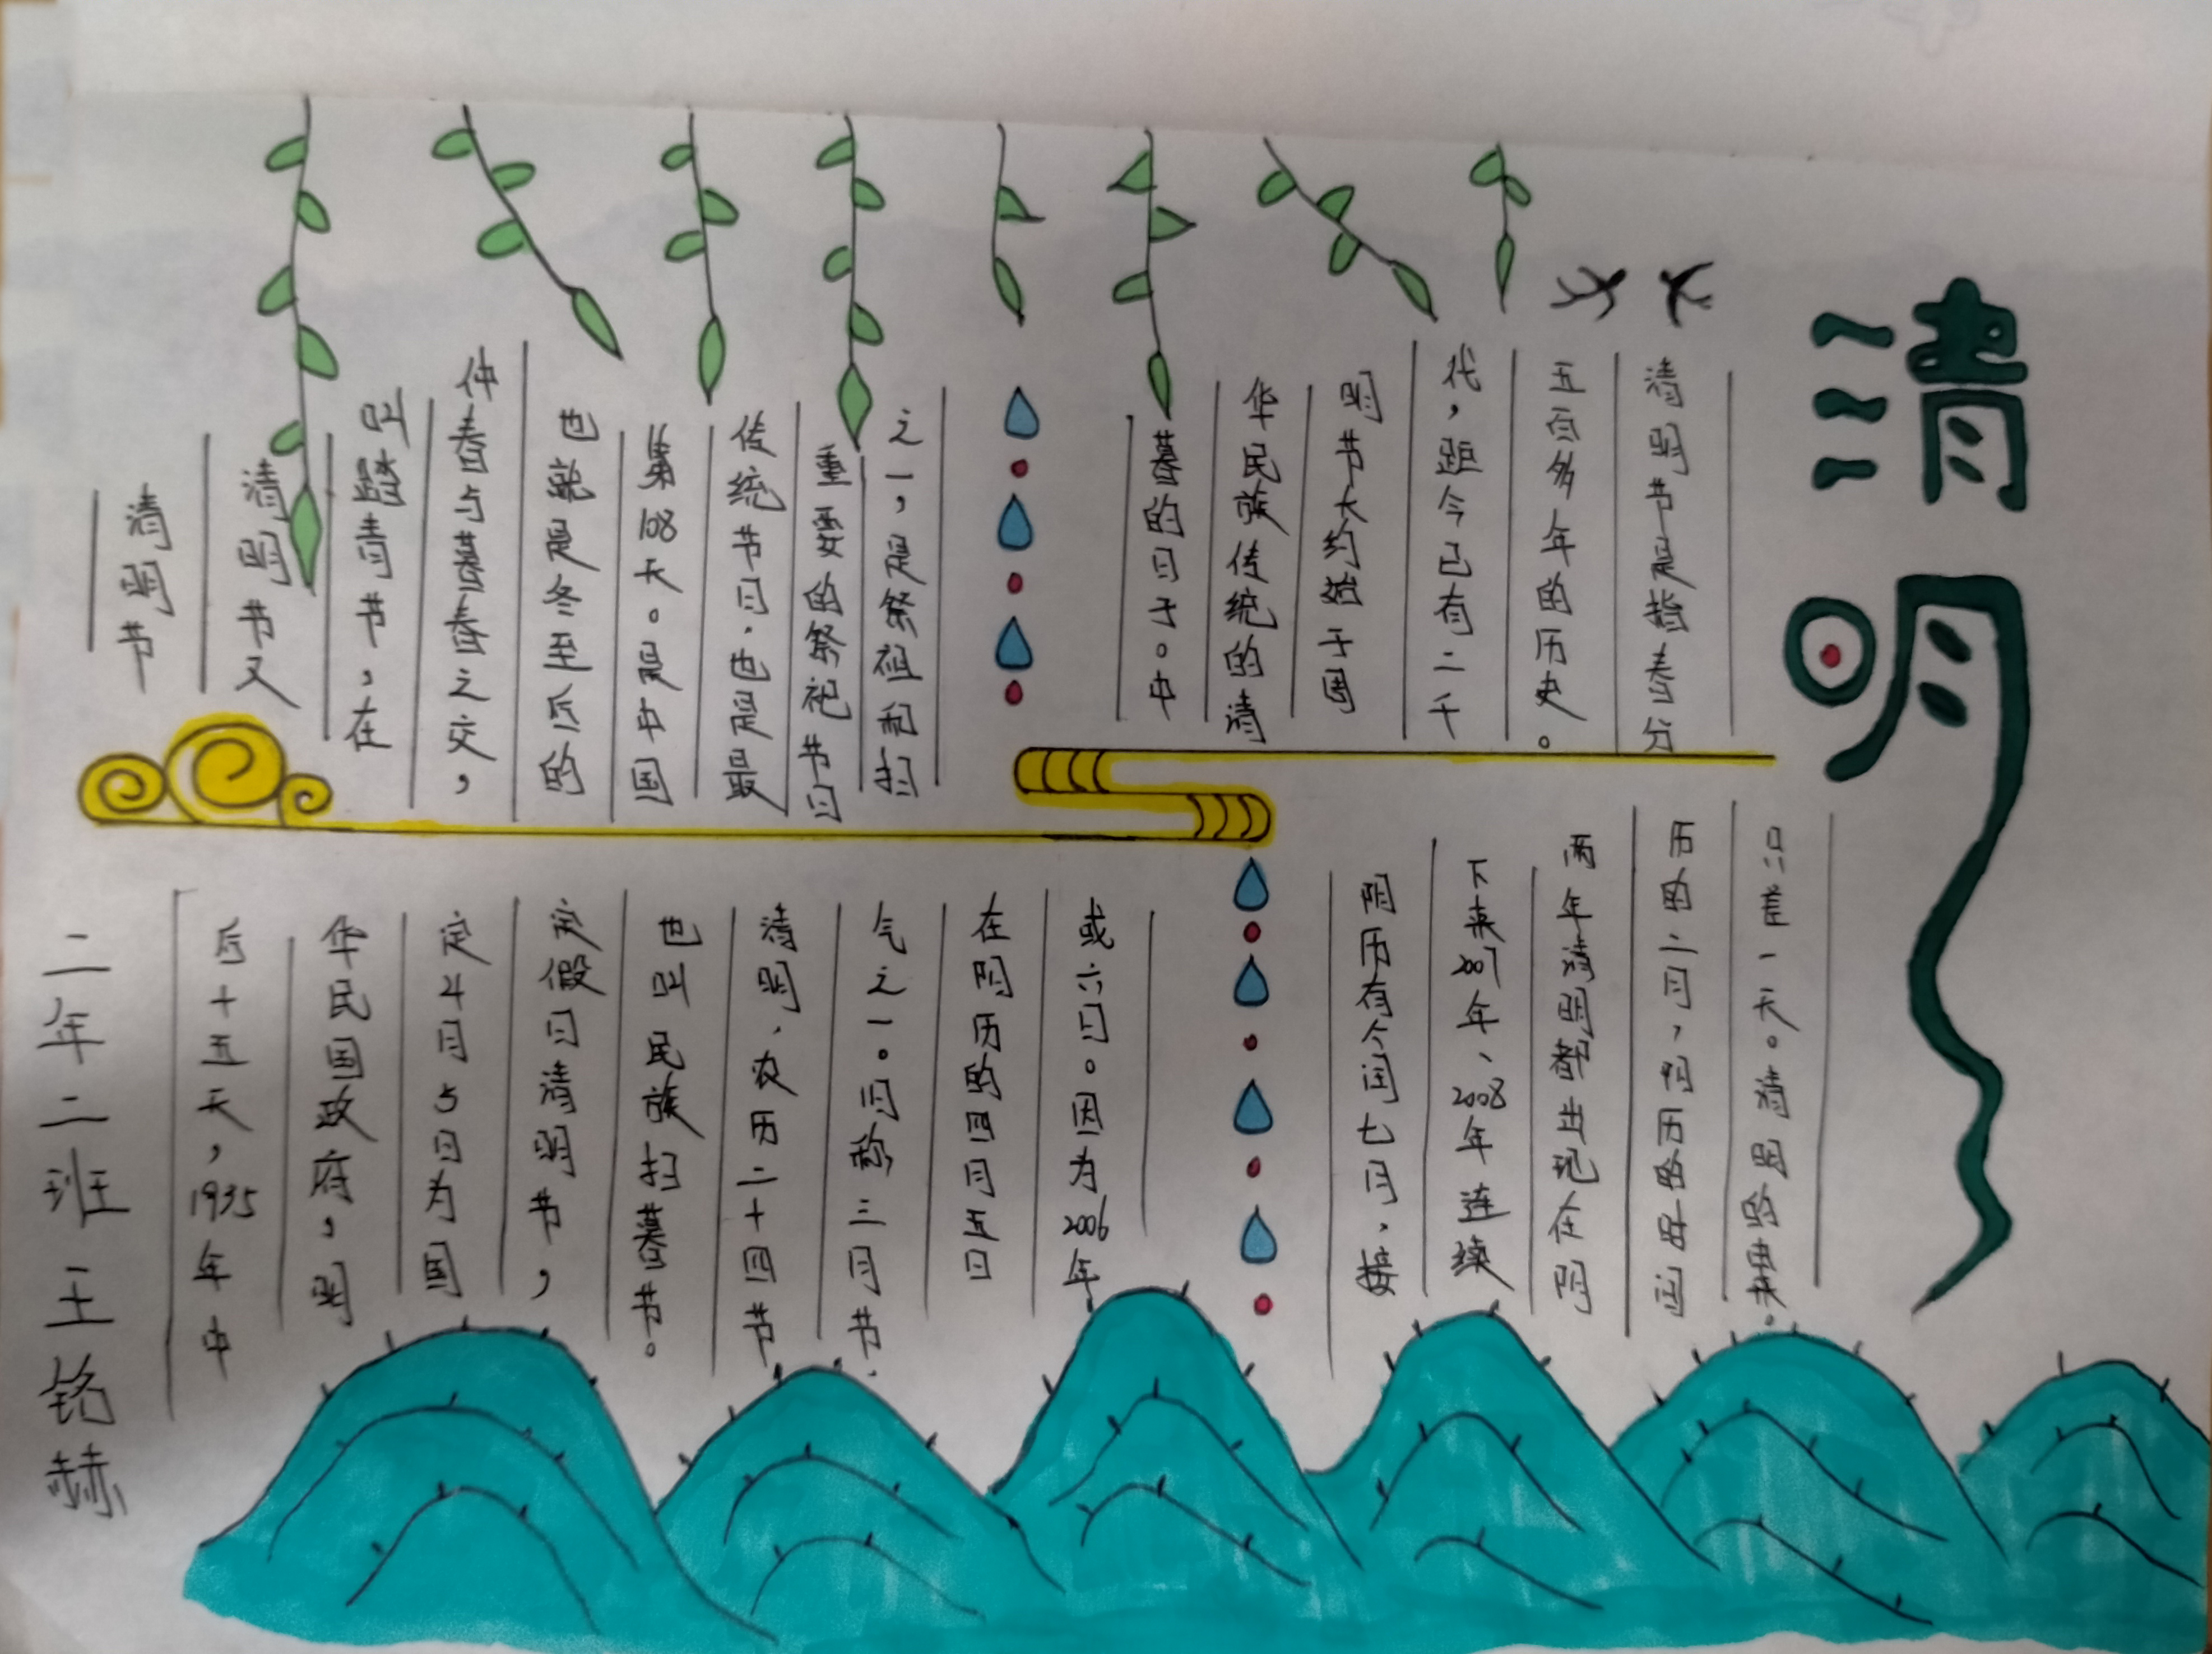 清明
清明节
清明节又
叫踏青节，在
仲春与暮春之交，
也就是冬至后的
第108天。是中国
传统节日.也是最
重要的祭祀节日
之一，是祭祖和扫
墓的日子。中
华民族传统的清
明节大约始于周
代，距今已有二千
五百多年的历史。
清明节是指春分
后十五天，1935年中
华民国政府，明
定4月5日为国
定假日清明节，
也叫民族扫墓节。
清明、农历二十四节
气之一。旧称三月节.
在阳历的四月五日
或六日。因为2006年
阴历有个闰七月，接
下来2007年、2008年连续
两年清明都出现在阴
历的二月，阳历的时间
只差一天。清明的由来。
二年二班王铭赫